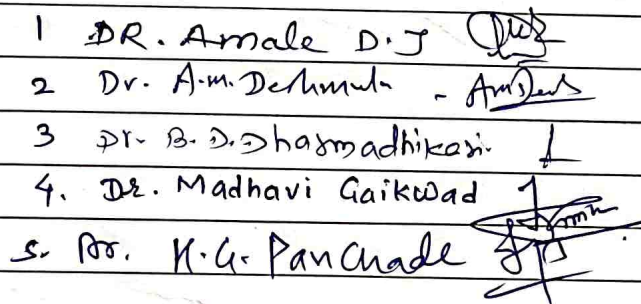 1 DR. Amale D.J
2 Dr. A.M. Deshmukh -
3 Dr. B.D. Dharmadhikari.
4. Dr. Madhavi Gaikwad
5. Dr. K.G. Panchade